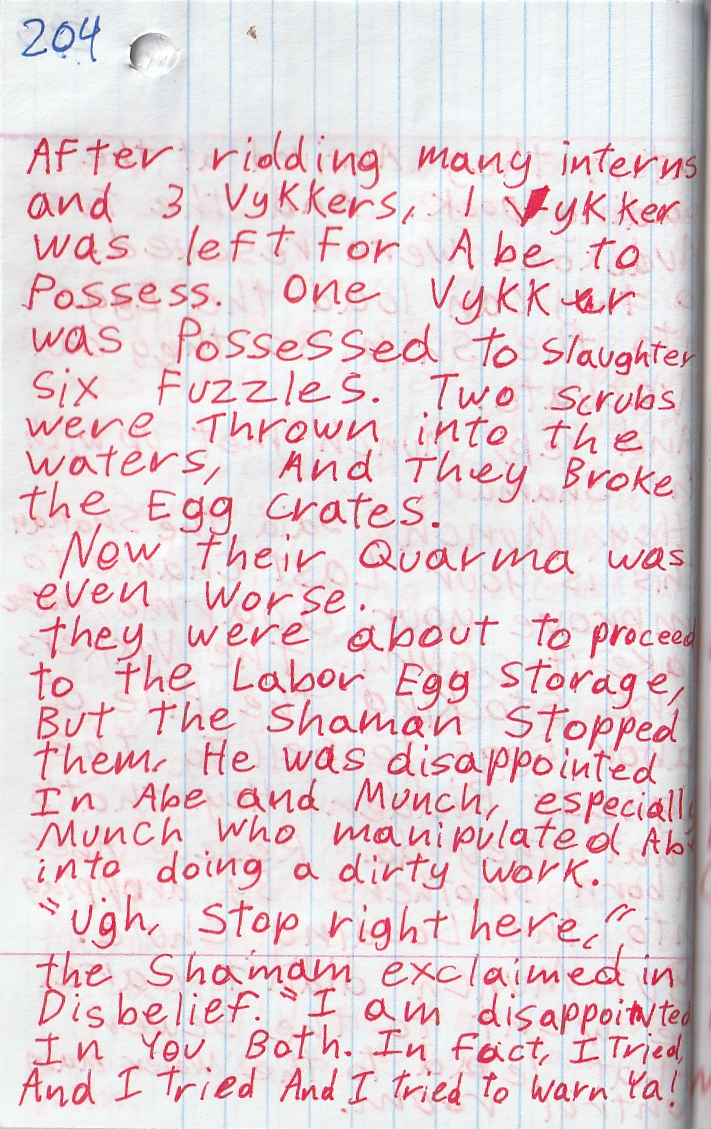 204
After ridding many interns
and 3 Vykkers, 1 Vykker
was left For Abe to
Possess. One Vykker
was Possessed to Slaughter
Six Fuzzles. Two Scrubs
were Thrown into the
waters, And They Broke
the Egg crates.
Now their Quarma was
even worse.
they were about to proceed
to the Labor Egg Storage,
But the Shaman Stopped
them. He was disappointed
In Abe and Munch, especially
Munch who manipulated Ab
into doing a dirty work.
"Ugh, Stop right here,"
the Shamam exclaimed in
Disbelief. "I am disappointed
In You Both. In Fact, I Tried,
And I Tried And I tried to Warn Ya!